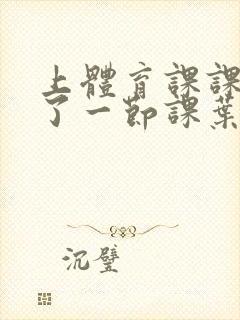 上體育課課
了一節課葉
沉璧